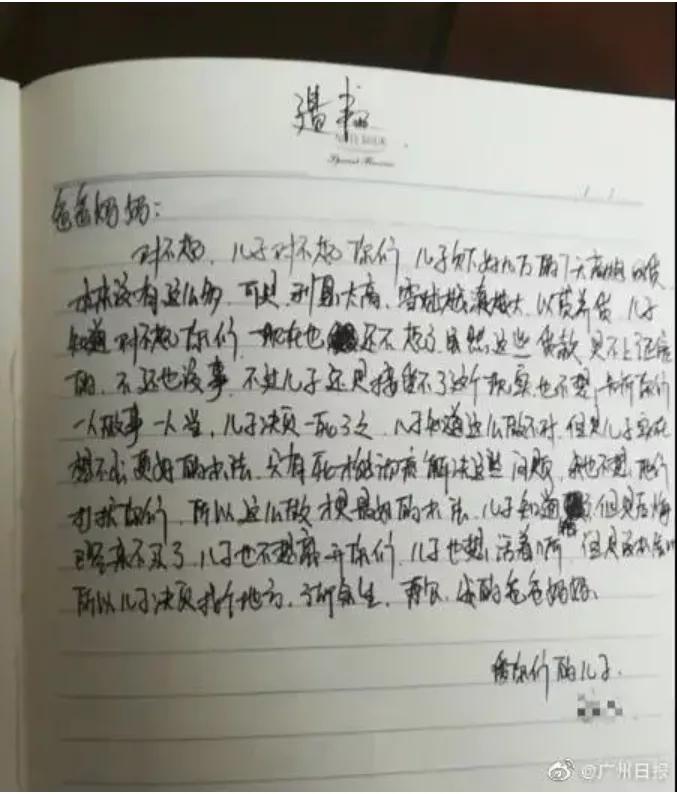 遗书
NOTE BOOK
Special Memories
爸爸妈妈：
对不起，儿子对不起你们，儿子欠下好几万的 网贷
本来没有这么多，可是利息太高，雪球越滚越大，以贷养贷，儿子
知道对不起你们，现在也 还不起了，虽然这些贷款，是不上征信
的，不还也没事，不过儿子还是接受不了这个现实，也不想 你们
一人做事一人当，儿子决定一死了之，儿子知道这么做不对，但是儿子实在
想不出更好的办法，只有死才能 解决这些问题， 也不想 他们
打扰你们，所以这么做才是最好的办法，儿子知道 但是后悔
已经来不及了，儿子也不想离开你们，儿子也想活着 但是没办法
所以儿子决定找个地方，了断余生，再见，我的爸爸妈妈。
你们的儿子
@广州日报